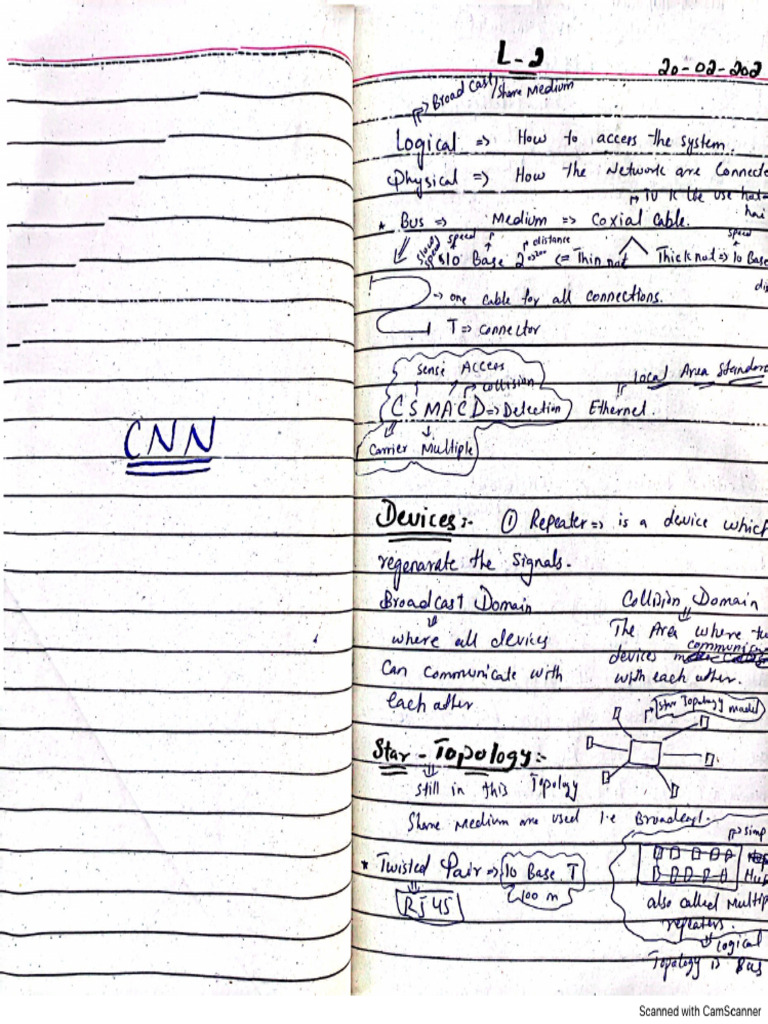 CNN
L-2
20-02-202
Broad Cast/Share Medium
Logical => How to access the system.
Physical => How the Network are Connecte
* Bus => Medium => Coxial Cable.
speed
distance
speed
10 Base 2 <= Thin not
Thick not => 10 Base
one cable for all connections.
T => connector
sense Access
collision
Local Area Standard
CSMACD => Detection
Ethernet.
Carrier Multiple
Devices:- ① Repeater => is a device which
regenarate the Signals.
Broadcast Domain
Collision Domain
where all devices
The Area where tw
communica
devices
can communicate with
with each other.
each other
star Topology model
Star - Topology:-
still in this Topology
Share Medium are used i.e Broadcast.
simp
* Twisted Pair => 10 Base T
100 m
RJ45
Hu
also called Multip
repeaters.
logical
Topology is Bus
Scanned with CamScanner